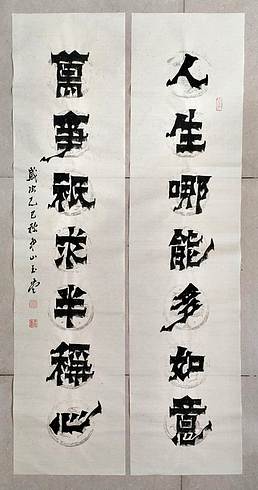 人生哪能多如意
萬事祇求半稱心
歲次乙巳秋